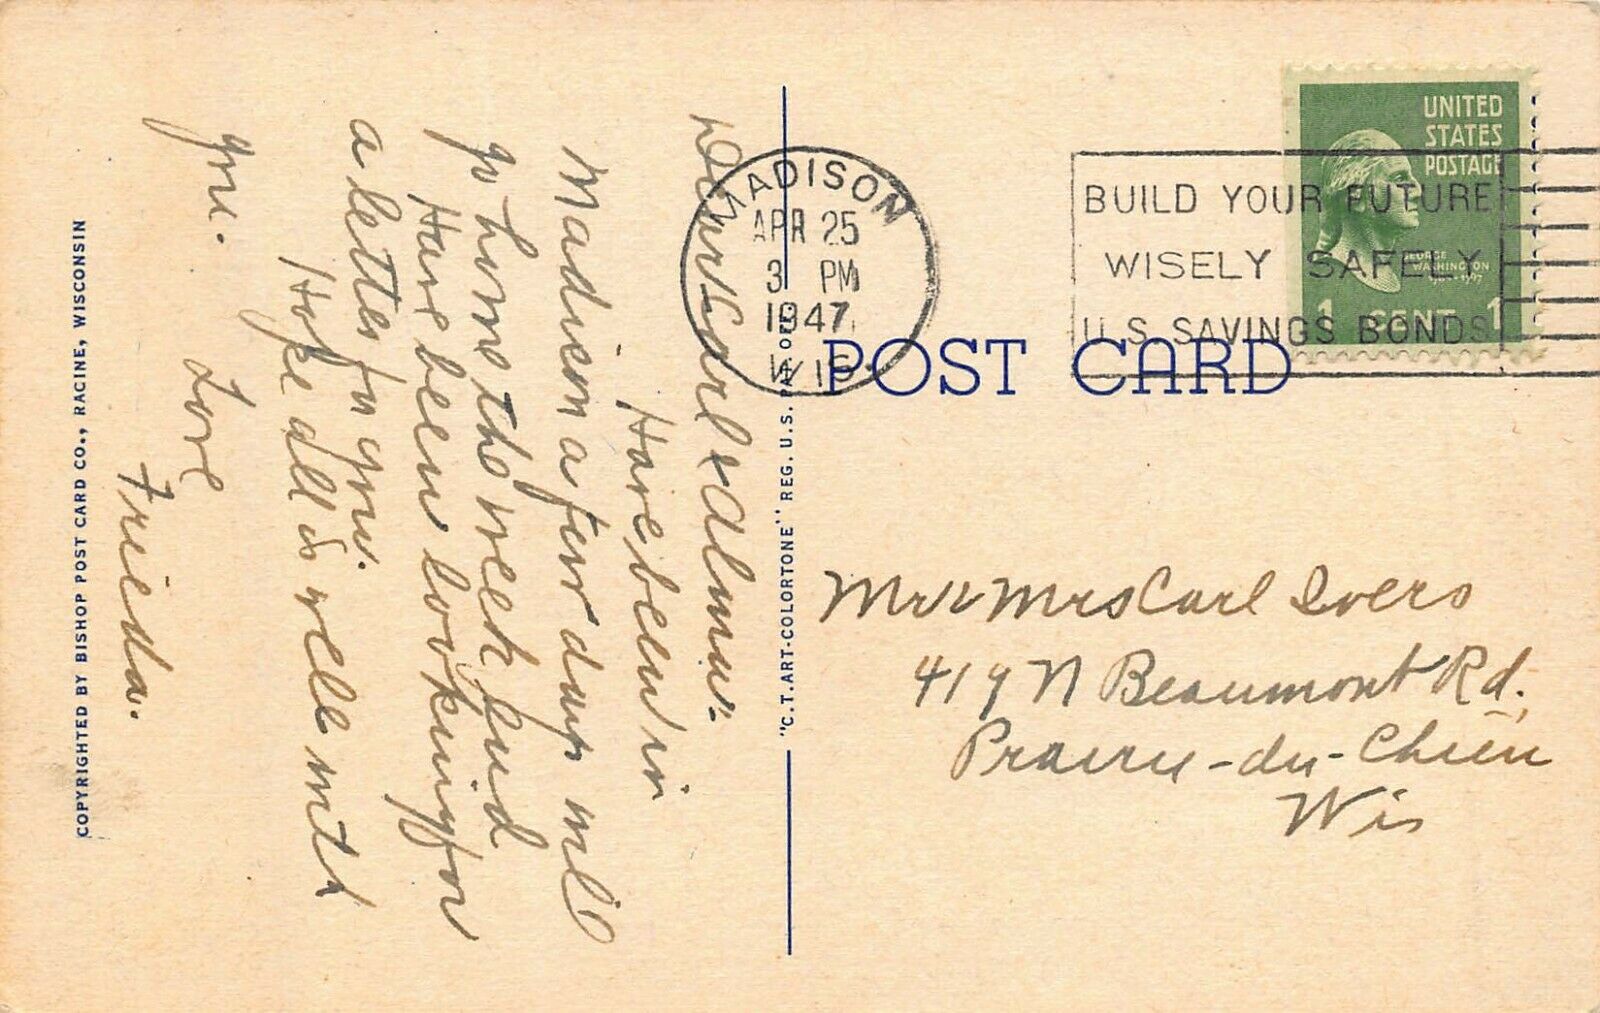 Dear Carl & Alma:
Have been in
Madison a few days will
go home the week end
Have been looking for
a letter for you.
Hope all is well with
you.
Love
Frieda.
COPYRIGHTED BY BISHOP POST CARD CO., RACINE, WISCONSIN
"C.T. ART-COLORTONE" REG. U.S. PAT. OFF.
POST CARD
MADISON
APR 25
3 PM
1947
WIS.
BUILD YOUR FUTURE
WISELY SAFELY
U.S. SAVINGS BONDS
UNITED
STATES
POSTAGE
GEORGE
WASHINGTON
1 CENT 1
Mr & Mrs Carl Ivers
419 N Beaumont Rd.
Prairie-du-Chien
Wis